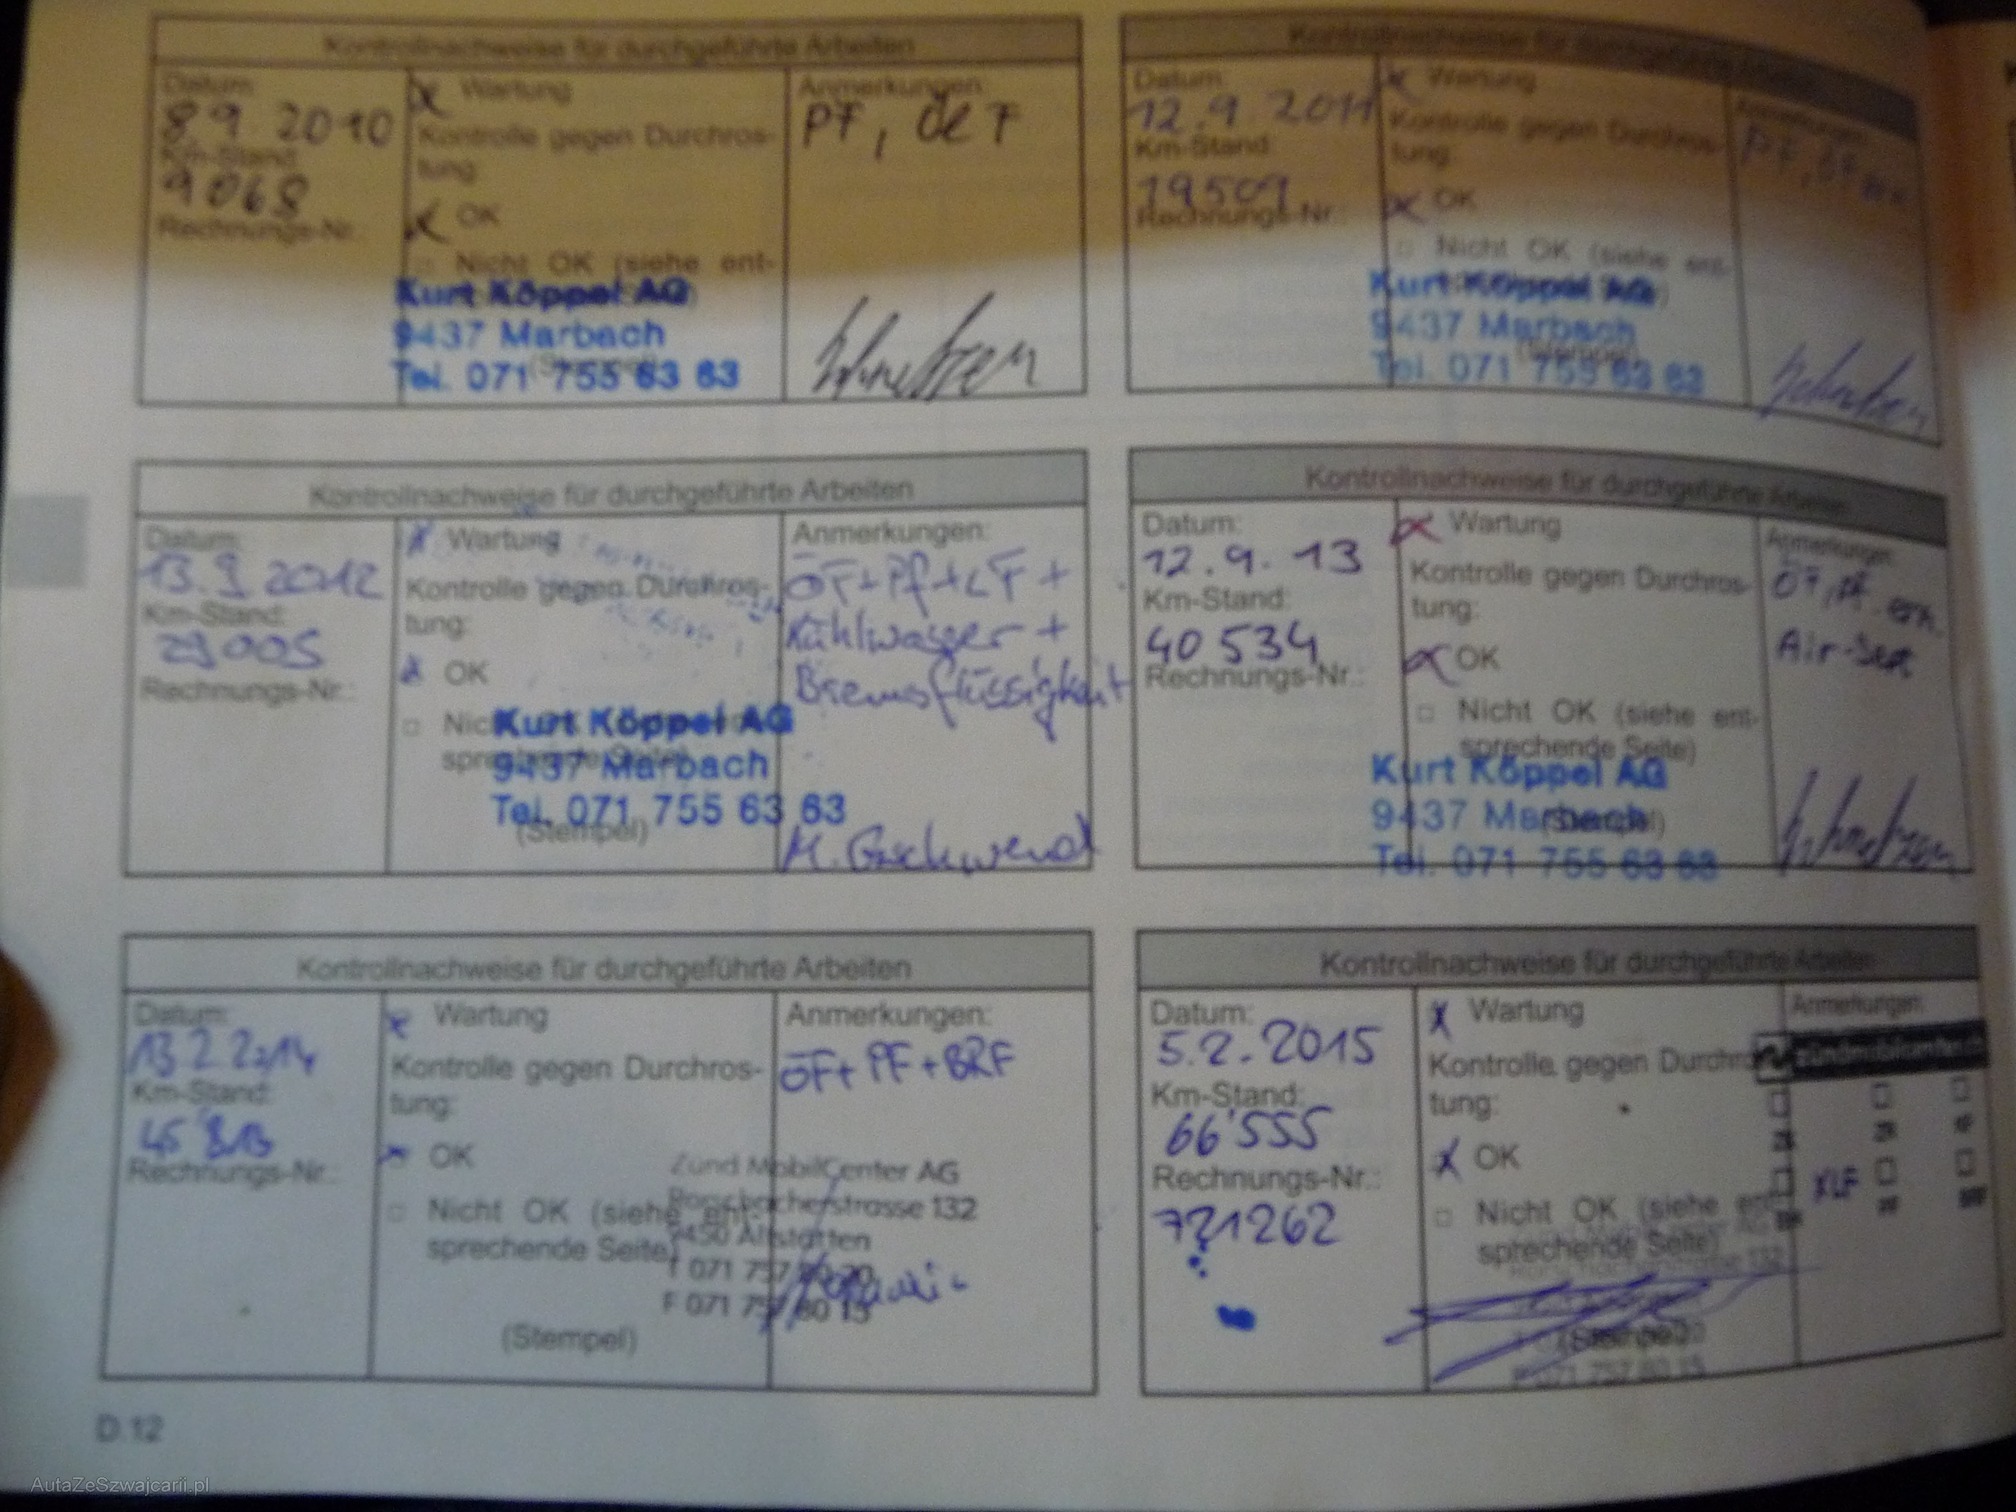 Kontrollnachweise für durchgeführte Arbeiten
Datum:
8 9. 2010
Km-Stand:
9068
Rechnungs-Nr.:
x Wartung
Kontrolle gegen Durchros-
tung:
x OK
□ Nicht OK (siehe ent-
Kurt Köppel AG
9437 Marbach
(Stempel)
Tel. 071 755 63 63
Anmerkungen:
PF,
Kontrollnachweise für durchgeführte Arbeiten
Datum:
12.9.2011
Km-Stand:
19509
Rechnungs-Nr.:
x Wartung
Kontrolle gegen Durchros-
tung:
x OK
□ Nicht OK (siehe ent-
Kurt Köppel AG
9437 Marbach
(Stempel)
Tel. 071 755 63 63
Anmerkungen:
PF,
Kontrollnachweise für durchgeführte Arbeiten
Datum:
13.9.2012
Km-Stand:
29005
Rechnungs-Nr.:
x Wartung
Kontrolle gegen Durchros-
tung:
x OK
□ Nicht
sprechende Seite)
Kurt Köppel AG
9437 Marbach
Tel. 071 755 63 63
(Stempel)
Anmerkungen:
ÖF+PF+LF+
Kühlwasser +
Bremsflüssigkeit
M. Gschwend
Kontrollnachweise für durchgeführte Arbeiten
Datum:
12.9.13
Km-Stand:
40 534
Rechnungs-Nr.:
x Wartung
Kontrolle gegen Durchros-
tung:
x OK
□ Nicht OK (siehe ent-
sprechende Seite)
Kurt Köppel AG
9437 Marbach
(Stempel)
Tel. 071 755 63 63
Anmerkungen:
ÖF, PF. ern.
Kontrollnachweise für durchgeführte Arbeiten
Datum:
Km-Stand:
Rechnungs-Nr.:
x Wartung
Kontrolle gegen Durchros-
tung:
x OK
□ Nicht OK (siehe ent-
sprechende Seite)
(Stempel)
Anmerkungen:
ÖF+ PF+BRF
Zünd MobilCenter AG
Rorschacherstrasse 132
9450 Altstätten
T 071 757
F 071 757 80 15
Kontrollnachweise für durchgeführte Arbeiten
Datum:
5.2.2015
Km-Stand:
66'555
Rechnungs-Nr.:
721262
x Wartung
Kontrolle gegen
tung:
x OK
□ Nicht OK (siehe ent-
sprechende Seite)
(Stempel)
Anmerkungen:
D.12
AutaZeSzwajcarii.pl